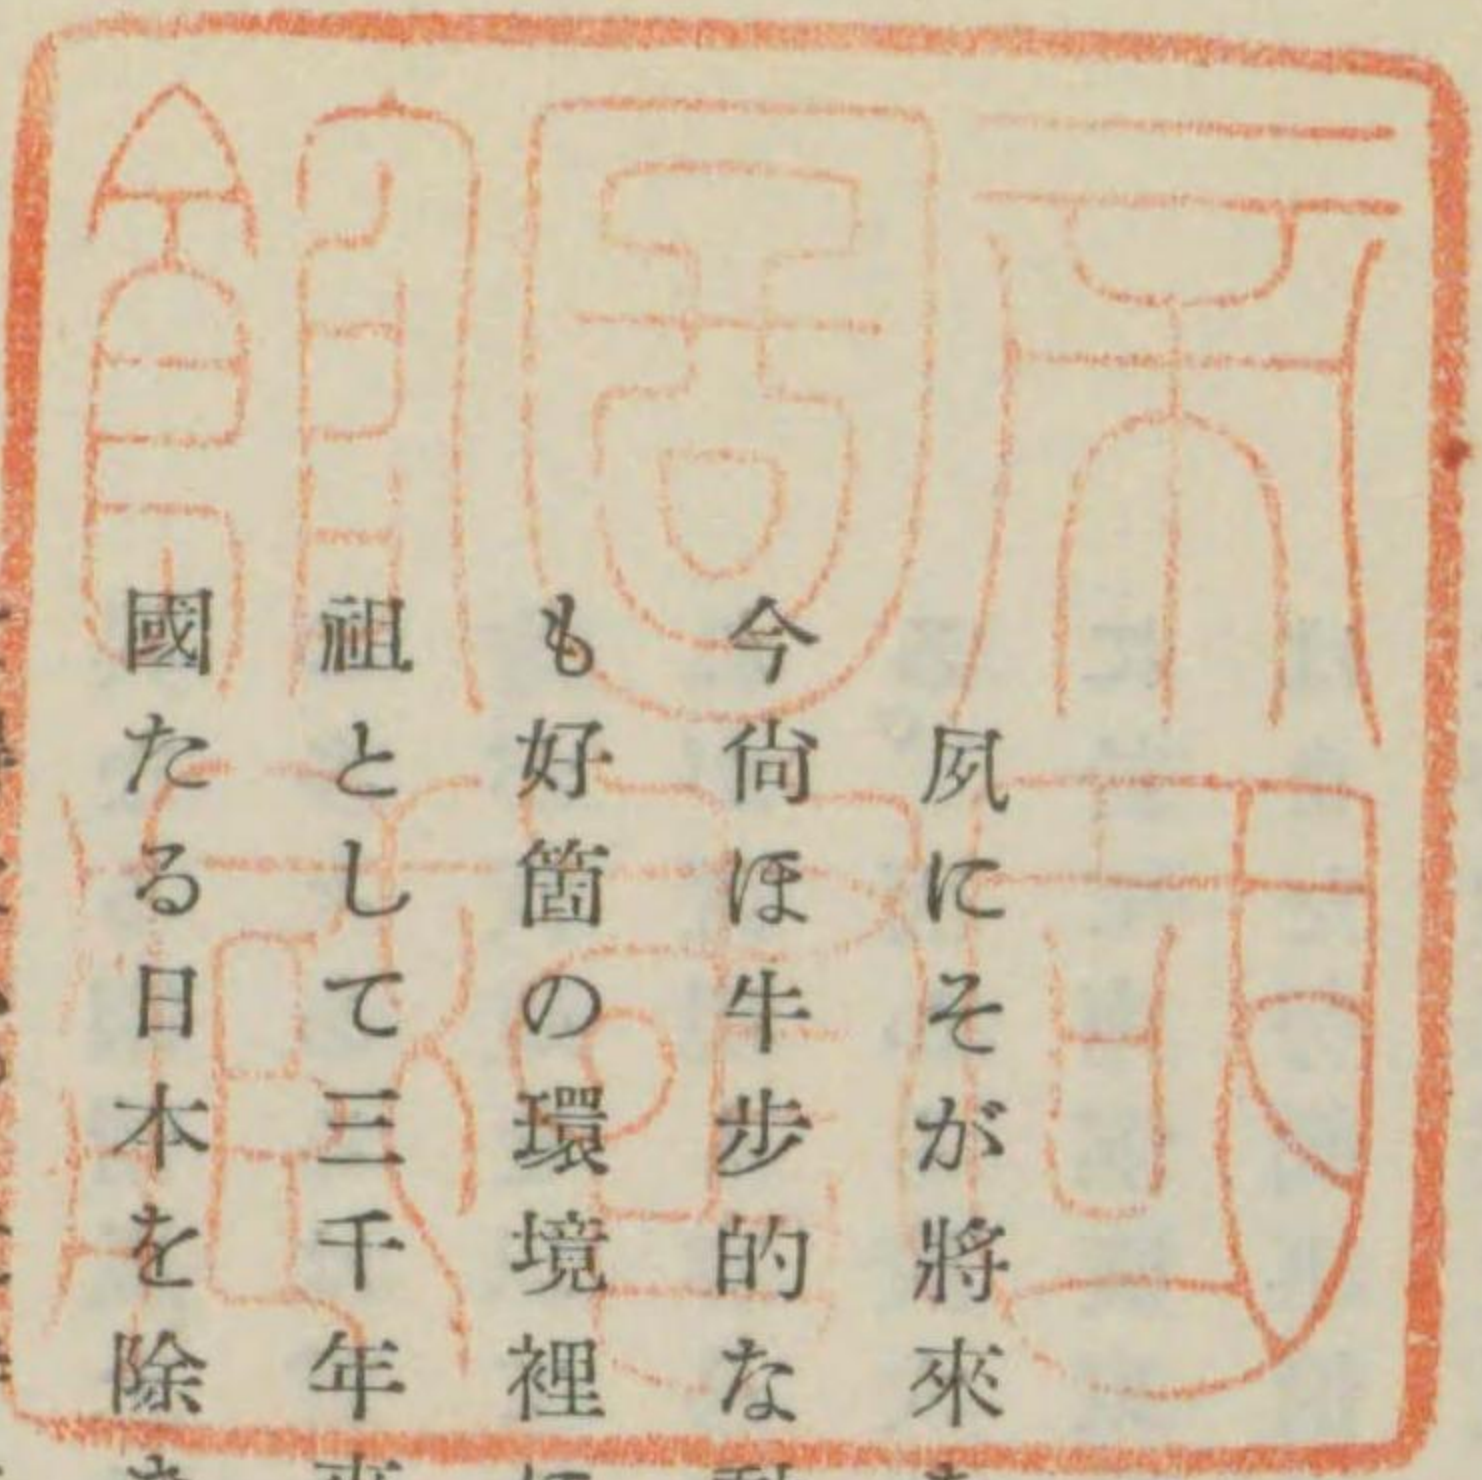 帝國
圖書
館藏
夙にそが將來
今尙ほ牛步的な
も好箇の環境裡
祖として三千年
國たる日本を除